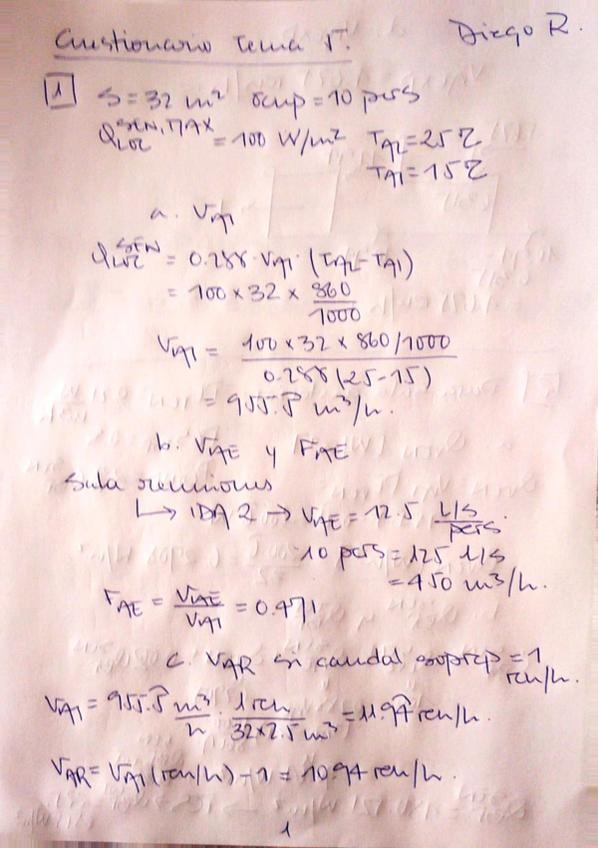 Cuestionario Tema 5.
Diego R.
1 S = 32 m² ocup = 10 pers
Q_LOC^SEN,MAX = 100 W/m² T_A2 = 25 ℃
T_A1 = 15 ℃
a. V_A1
Q_LOC^SEN = 0.288 · V_A1 · (T_A2 - T_A1)
= 100 × 32 × 860/1000
V_A1 = 100 × 32 × 860/1000 / 0.288 (25-15)
= 955.5 m³/h.
b. V_AE y F_AE
Sala reuniones
↳ IDA 2 → V_AE = 12.5 l/s / pers.
10 pers = 125 l/s
= 450 m³/h.
F_AE = V_AE / V_A1 = 0.471
c. V_AR si caudal sobrep = 1
ren/h.
V_A1 = 955.5 m³/h · 1 ren / 32×2.5 m³ = 11.94 ren/h.
V_AR = V_A1 (ren/h) - 1 = 10.94 ren/h.
1